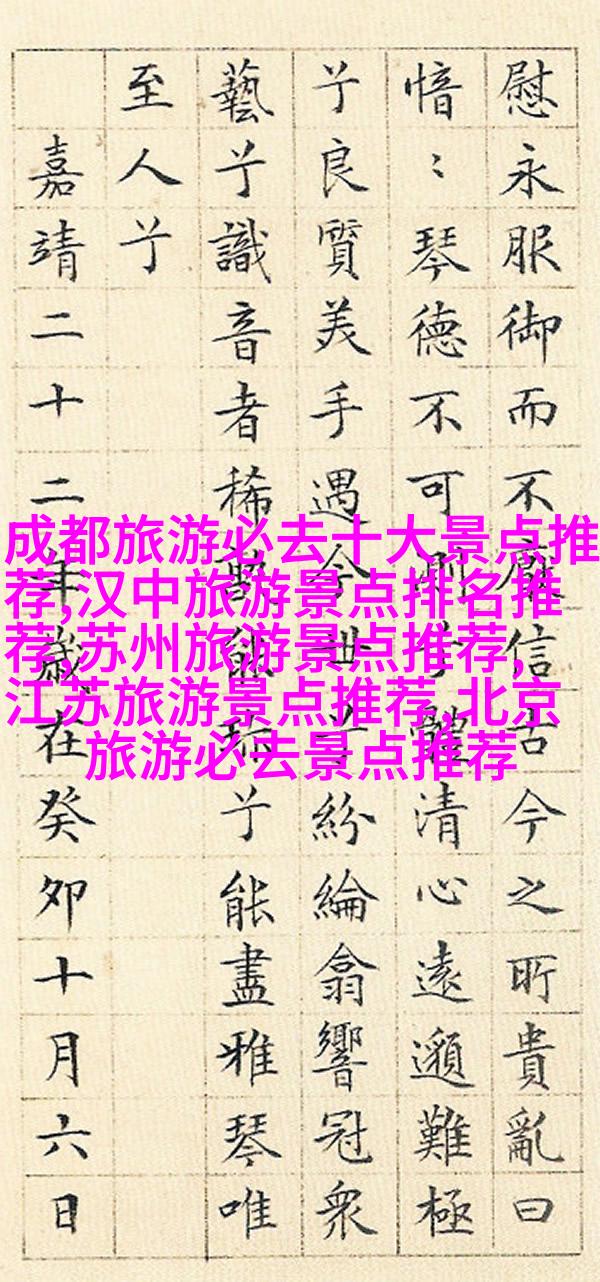 慰永服御而不厭信古今之所貴亂曰
愔〻琴德不可測兮體清心遠邈難極
兮良質美手遇今世兮紛綸翕響冠衆
藝兮識音者稀孰能珍兮能盡雅琴唯
至人兮
嘉靖二十二年歲在癸卯十月六日
成都旅游必去十大景点推
荐,汉中旅游景点排名推
荐,苏州旅游景点推荐,
江苏旅游景点推荐,北京
旅游必去景点推荐